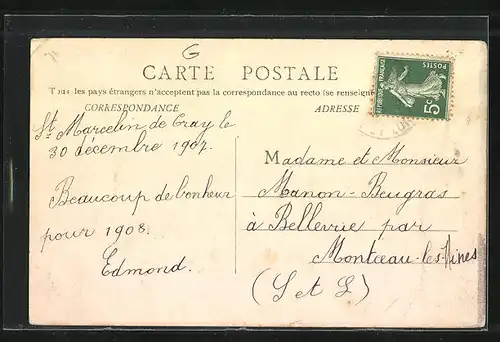 G
CARTE POSTALE
Tous les pays étrangers n'acceptent pas la correspondance au recto (se renseigner
CORRESPONDANCE
ADRESSE
POSTES
REPUBLIQUE FRANÇAISE
5c
St Marcelin de Cray le
30 décembre 1907.
Beaucoup de bonheur
pour 1908.
Edmond.
Madame et Monsieur
Manon-Beugras
à Bellevue par
Montceau-les-Mines
(S et L)